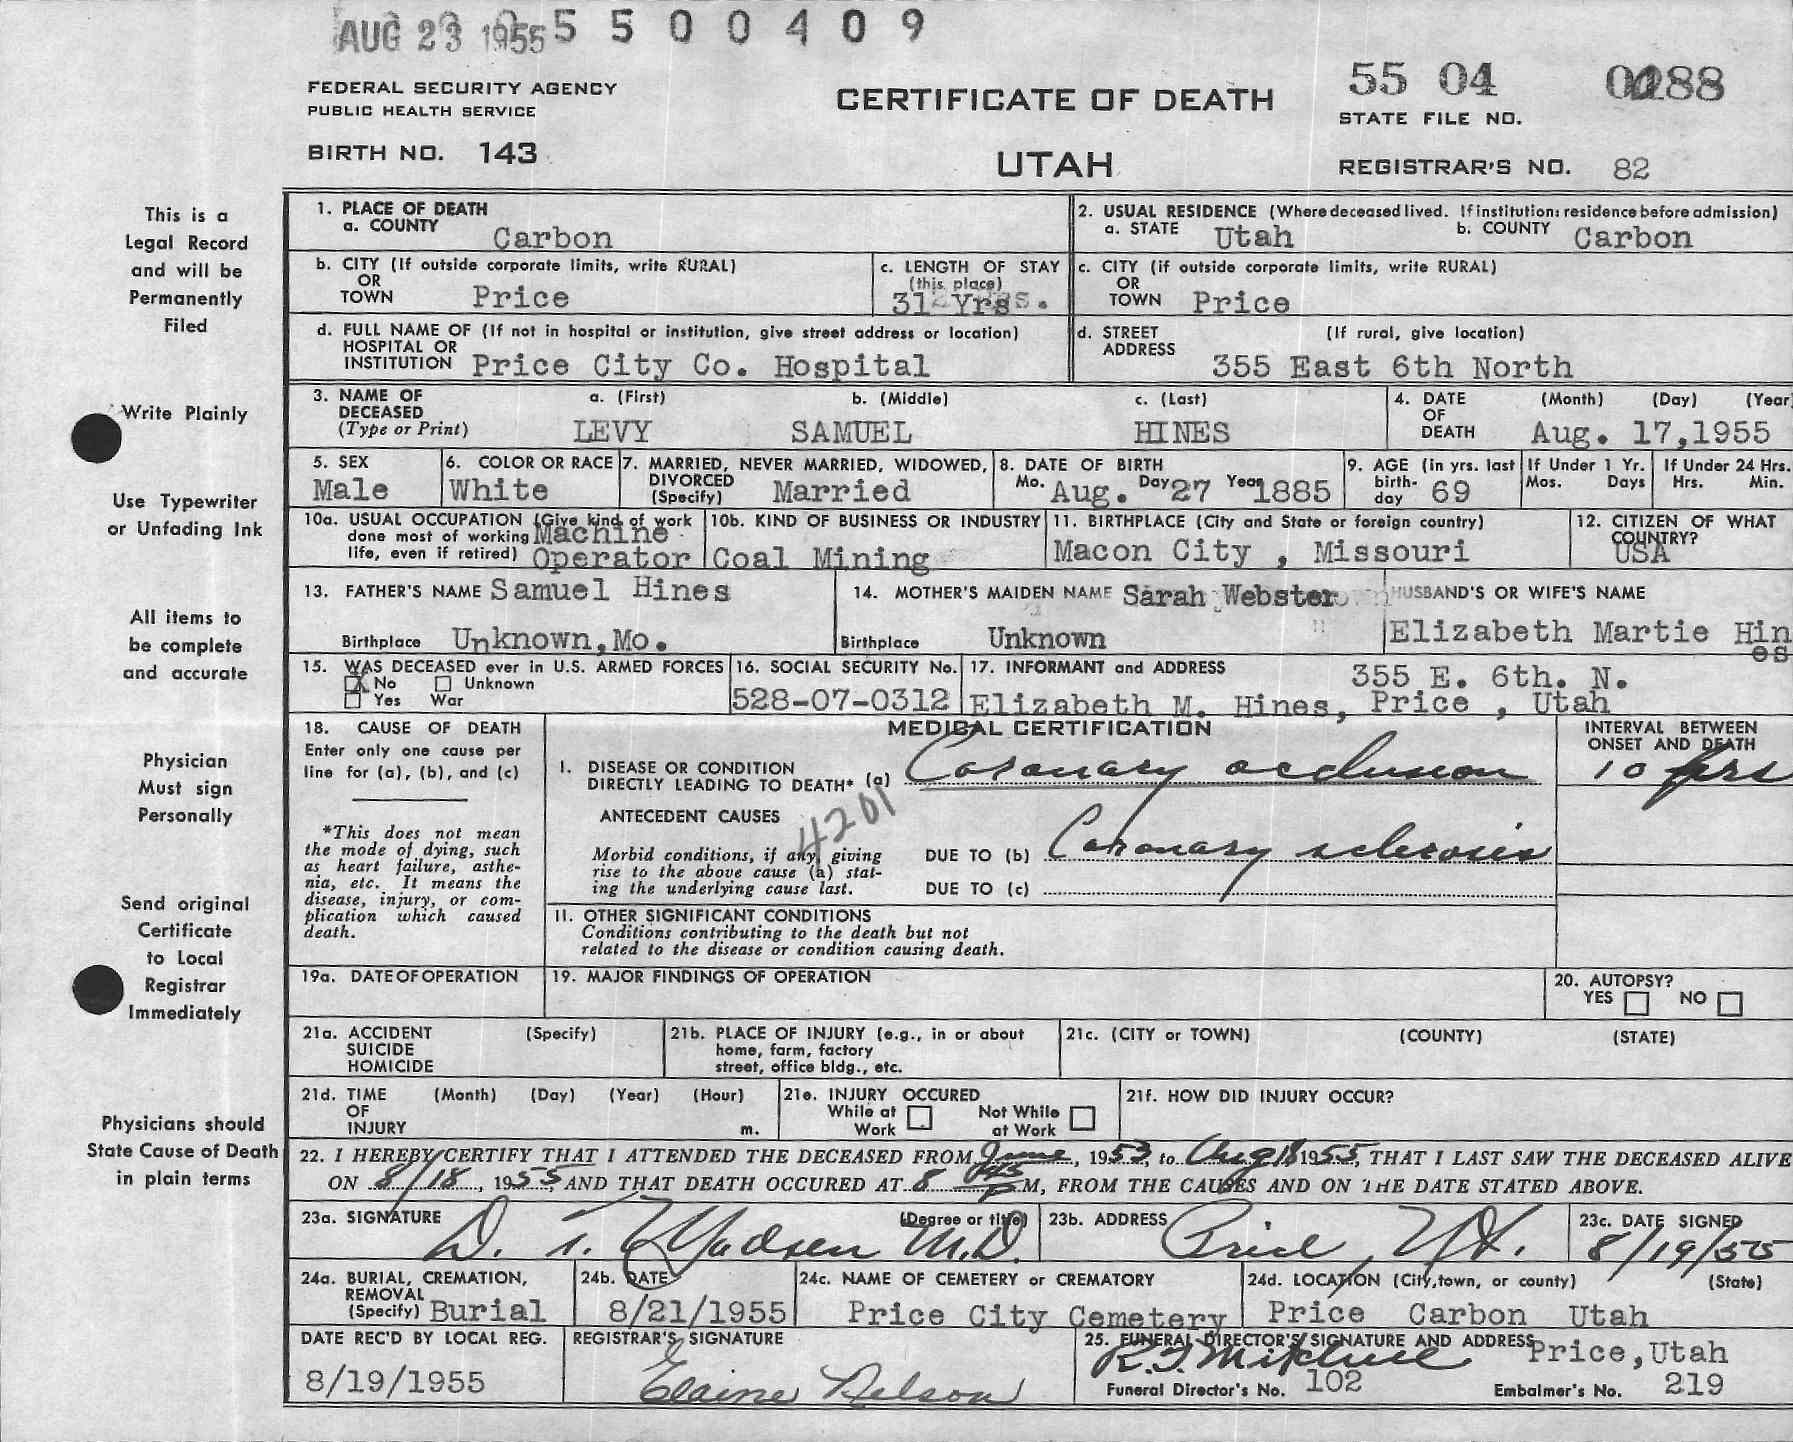 AUG 23 1955 5 5 0 0 4 0 9
FEDERAL SECURITY AGENCY
PUBLIC HEALTH SERVICE
BIRTH NO. 143
CERTIFICATE OF DEATH
UTAH
55 04 88
STATE FILE NO.
REGISTRAR'S NO. 82
This is a
Legal Record
and will be
Permanently
Filed
Write Plainly
Use Typewriter
or Unfading Ink
All items to
be complete
and accurate
Physician
Must sign
Personally
Send original
Certificate
to Local
Registrar
Immediately
Physicians should
State Cause of Death
in plain terms
1. PLACE OF DEATH
a. COUNTY Carbon
2. USUAL RESIDENCE (Where deceased lived. If institution: residence before admission)
a. STATE Utah b. COUNTY Carbon
b. CITY (If outside corporate limits, write RURAL)
OR
TOWN Price
c. LENGTH OF STAY
(this place)
31 Yrs.
c. CITY (if outside corporate limits, write RURAL)
OR
TOWN Price
d. FULL NAME OF (If not in hospital or institution, give street address or location)
HOSPITAL OR
INSTITUTION Price City Co. Hospital
d. STREET (If rural, give location)
ADDRESS 355 East 6th North
3. NAME OF a. (First) b. (Middle) c. (Last)
DECEASED
(Type or Print) LEVY SAMUEL HINES
4. DATE (Month) (Day) (Year
OF
DEATH Aug. 17,1955
5. SEX
Male
6. COLOR OR RACE
White
7. MARRIED, NEVER MARRIED, WIDOWED,
DIVORCED
(Specify) Married
8. DATE OF BIRTH
Mo. Aug. Day 27 Year 1885
9. AGE (in yrs. last
birth-
day 69
If Under 1 Yr.
Mos. Days
If Under 24 Hrs.
Hrs. Min.
10a. USUAL OCCUPATION (Give kind of work
done most of working Machine
life, even if retired) Operator
10b. KIND OF BUSINESS OR INDUSTRY
Coal Mining
11. BIRTHPLACE (City and State or foreign country)
Macon City , Missouri
12. CITIZEN OF WHAT
COUNTRY?
USA
13. FATHER'S NAME Samuel Hines
Birthplace Unknown,Mo.
14. MOTHER'S MAIDEN NAME Sarah Webster
Birthplace Unknown
HUSBAND'S OR WIFE'S NAME
Elizabeth Martie Hin
es
15. WAS DECEASED ever in U.S. ARMED FORCES
X No Unknown
Yes War
16. SOCIAL SECURITY No.
528-07-0312
17. INFORMANT and ADDRESS 355 E. 6th. N.
Elizabeth M. Hines, Price , Utah
18. CAUSE OF DEATH
Enter only one cause per
line for (a), (b), and (c)
*This does not mean
the mode of dying, such
as heart failure, asthe-
nia, etc. It means the
disease, injury, or com-
plication which caused
death.
MEDICAL CERTIFICATION
INTERVAL BETWEEN
ONSET AND DEATH
I. DISEASE OR CONDITION
DIRECTLY LEADING TO DEATH* (a) Coronary occlusion 10 hrs
4201
ANTECEDENT CAUSES
Morbid conditions, if any, giving
rise to the above cause (a) stat-
ing the underlying cause last.
DUE TO (b) Coronary sclerosis
DUE TO (c)
II. OTHER SIGNIFICANT CONDITIONS
Conditions contributing to the death but not
related to the disease or condition causing death.
19a. DATE OF OPERATION
19. MAJOR FINDINGS OF OPERATION
20. AUTOPSY?
YES NO
21a. ACCIDENT (Specify)
SUICIDE
HOMICIDE
21b. PLACE OF INJURY (e.g., in or about
home, farm, factory
street, office bldg., etc.
21c. (CITY or TOWN) (COUNTY) (STATE)
21d. TIME (Month) (Day) (Year) (Hour)
OF
INJURY m.
21e. INJURY OCCURED
While at Work Not While at Work
21f. HOW DID INJURY OCCUR?
22. I HEREBY CERTIFY THAT I ATTENDED THE DECEASED FROM June, 1953, to Aug 18 1955, THAT I LAST SAW THE DECEASED ALIVE
ON 8/18, 1955, AND THAT DEATH OCCURED AT 8 45 P M, FROM THE CAUSES AND ON THE DATE STATED ABOVE.
23a. SIGNATURE (Degree or title)
D. T. Madsen M.D.
23b. ADDRESS
Price, Ut.
23c. DATE SIGNED
8/19/55
24a. BURIAL, CREMATION,
REMOVAL
(Specify) Burial
24b. DATE
8/21/1955
24c. NAME OF CEMETERY or CREMATORY
Price City Cemetery
24d. LOCATION (City, town, or county) (State)
Price Carbon Utah
DATE REC'D BY LOCAL REG.
8/19/1955
REGISTRAR'S SIGNATURE
Elaine Nelson
25. FUNERAL DIRECTOR'S SIGNATURE AND ADDRESS Price,Utah
Funeral Director's No. 102 Embalmer's No. 219